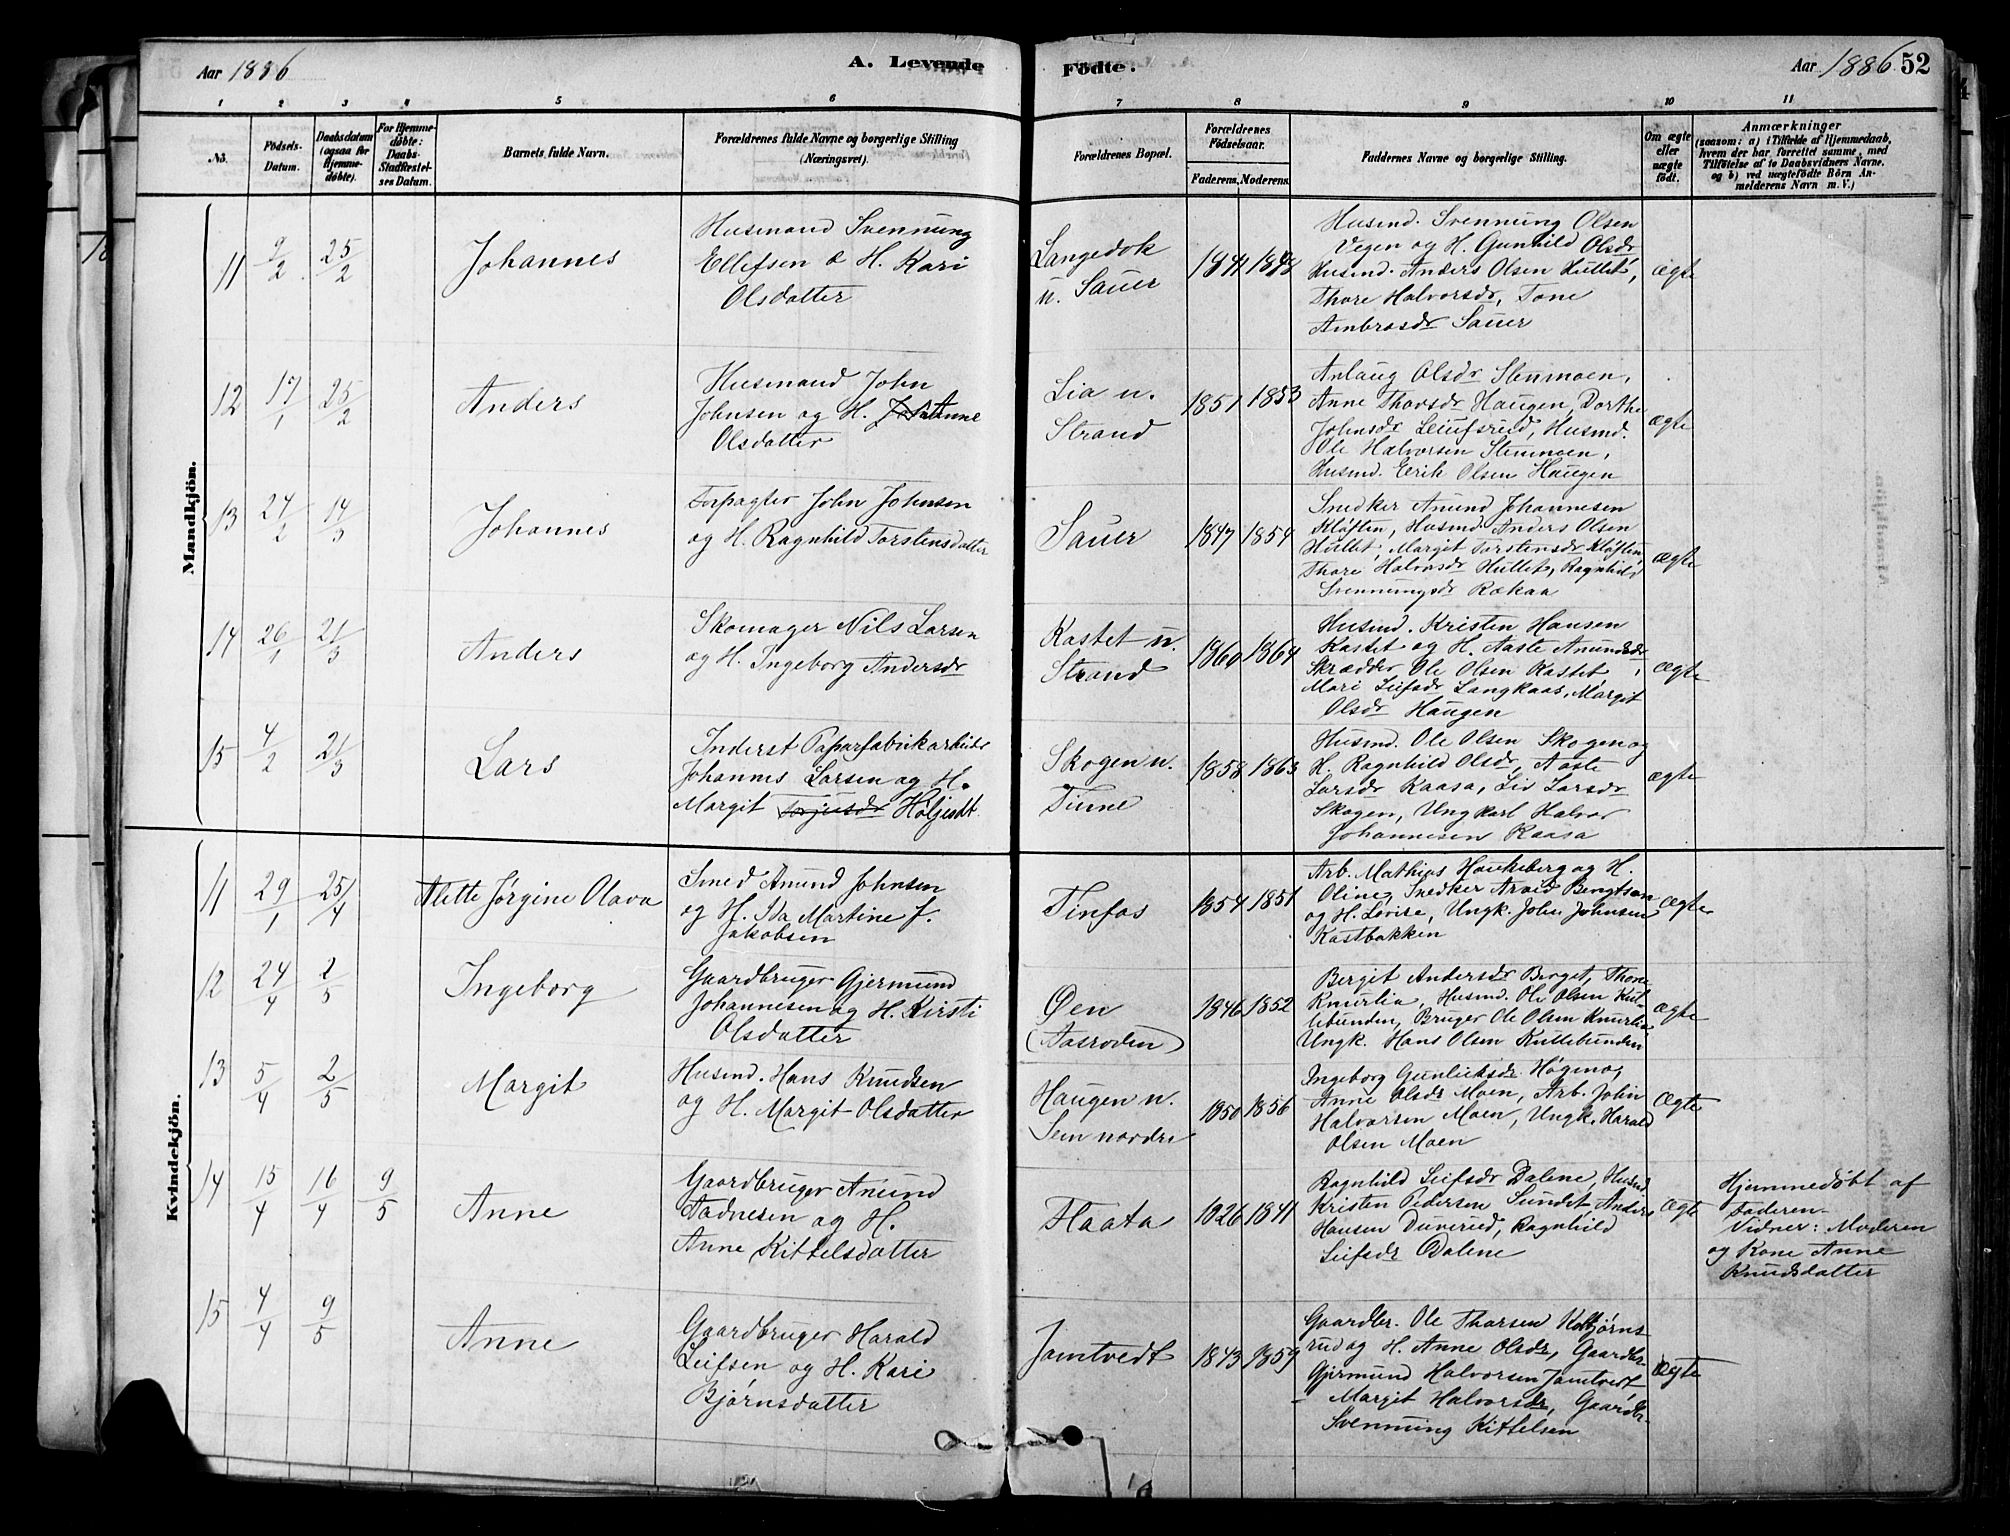 Aar 1886
A. Levende
Födte.
Aar 1886
52
1 2 3 4 5 6 7 8 9 10 11
No.
Födsels-
Datum.
Daabsdatum
(ogsaa for
Hjemme-
døbte).
For Hjemme-
døbte:
Daabs-
Stadfæstel-
ses Datum.
Barnets fulde Navn.
Forældrenes fulde Navne og borgerlige Stilling
(Næringsvei).
Forældrenes Bopæl.
Forældrenes
Födselsaar.
Faderens. Moderens.
Faddernes Navne og borgerlige Stilling.
Om ægte
eller
uægte
födt.
Anmærkninger
(saasom: a) i Tilfælde af Hjemmedaab,
hvem der har forrettet samme, med
Tilföielse af to Daabsvidners Navne,
og b) ved uægtefödte Börn An-
melderens Navn m. V.)
Mandkjön.
11 9/2 25/2 Johannes
Husmand Svennung
Ellefsen & H. Kari
Olsdatter
Langedok
u. Sauer
1841 1848
Husmd. Svennung Olsen
Vegen og H. Gunhild Olsdr
Husmd. Anders Olsen Hullet,
Thore Halvorsdr, Tone
Ambrosdr Sauer
ægte
12 17/1 25/2 Anders
Husmand John
Johnsen og H. Anne
Olsdatter
Lia u.
Strand
1851 1853
Anlaug Olsdr Stenmoen,
Anne Thorsdr Haugen, Dorthe
Johnsdr Leiufsrud, Husmd.
Ole Halvorsen Stenmoen,
Husmd. Erik Olsen Haugen
ægte
13 24/2 14/3 Johannes
Forpagter John Johnsen
og H. Ragnhild Torstensdatter
Sauer
1847 1854
Snedker Amund Johannesen
Kløften, Husmd. Anders Olsen
Hullet, Margit Torstensdr Kløften,
Thore Halvorsdr Hullet, Ragnhild
Svennungsdr Rækaa
ægte
14 26/1 21/3 Anders
Skomager Nils Larsen
og H. Ingeborg Andersdr
Kastet u.
Strand
1860 1864
Husmd. Kristen Hansen
Kastet og H. Aaste Amundsdr,
Skrædder Ole Olsen Kastet,
Mari Leifsdr Langkaas, Margit
Olsdr Haugen
ægte
15 4/2 21/3 Lars
Inderst Papirfabrikarbeider
Johannes Larsen og H.
Margit Torjusdr Høljesdt.
Skogen u.
Tinne
1858 1863
Husmd. Ole Olsen Skogen og
H. Ragnhild Olsdr, Aaste
Larsdr Kaasa, Liv Larsdr
Skogen, Ungkarl Halvor
Johannesen Kaasa
ægte
Kvindekjön.
11 29/1 25/4 Alette Jørgine Olava
Smed Anund Johnsen
og H. Ida Martine f.
Jakobsen
Tinfos
1854 1851
Arb. Mathias Haukeberg og H.
Oline, Snedker Arvid Bengtson
og H. Lovise, Ungk. John Johnsen
Kastbakken
Ægte
12 24/4 2/5 Ingeborg
Gaardbruger Gjermund
Johannesen og H. Kirsti
Olsdatter
Øen
(Aasroden)
1846 1852
Bergit Andersdr Berget, Thone
Knurlia, Husmd. Ole Olsen Kut-
lebunden, Bruger Ole Olsen Knurlia
Ungk. Hans Olsen Kuttebunden
Ægte
13 5/4 2/5 Margit
Husmd. Hans Knudsen
og H. Margit Olsdatter
Haugen u.
Sem nordre
1850 1856
Ingeborg Gunleiksdr Høgen og
Anne Olsdr Moen, Arb. John
Halvorsen Moen, Ungk. Harald
Olsen Moen
Ægte
14 15/4 16/4 9/5 Anne
Gaardbruger Anund
Aadnesen og H.
Anne Kittelsdatter
Haata
1826 1841
Ragnhild Leifsdr Dalene, Husmd
Kristen Pedersen Sundet, Anders
Hansen Duverud, Ragnhild
Leifsdr Dalene
Ægte
Hjemmedøbt af
Faderen.
Vidner: Moderen
og Kone Anne
Knudsdatter
15 4/4 9/5 Anne
Gaardbruger Harald
Leifsen og H. Kari
Bjørnsdatter
Jamtvedt
1843 1859
Gaardbr. Ole Thorsen Kolbjørns-
rud og H. Anne Olsdr, Gaardbr.
Gjermund Halvorsen Jamtvedt
Margit Halvorsdr, Gaardbr.
Svennung Kittelsen
Ægte